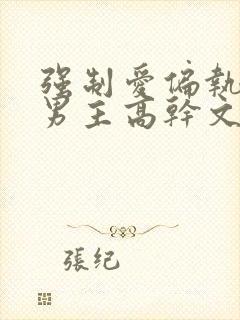 强制爱偏執
男主高幹文
張纪